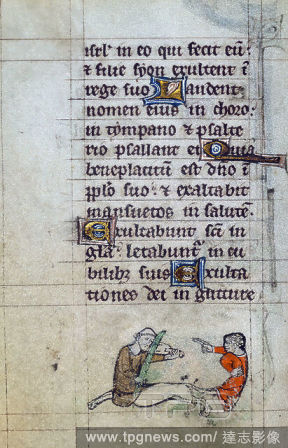 isrl' in eo qui fecit eū:
⁊ filie syon exultent ī
rege suo Laudent
nomen eius in choro:
in tympano ⁊ psalte
rio psallant ei Quia
beneplacitum est dn̄o ī
pp̄lo suo: ⁊ exaltabit
mansuetos in salutē.
Exultabunt sc̄i in
gl̄a: letabunt᷑ in cu
bilibꝫ suis Exulta
tiones dei in gutture
www.tpgnews.com / 達志影像